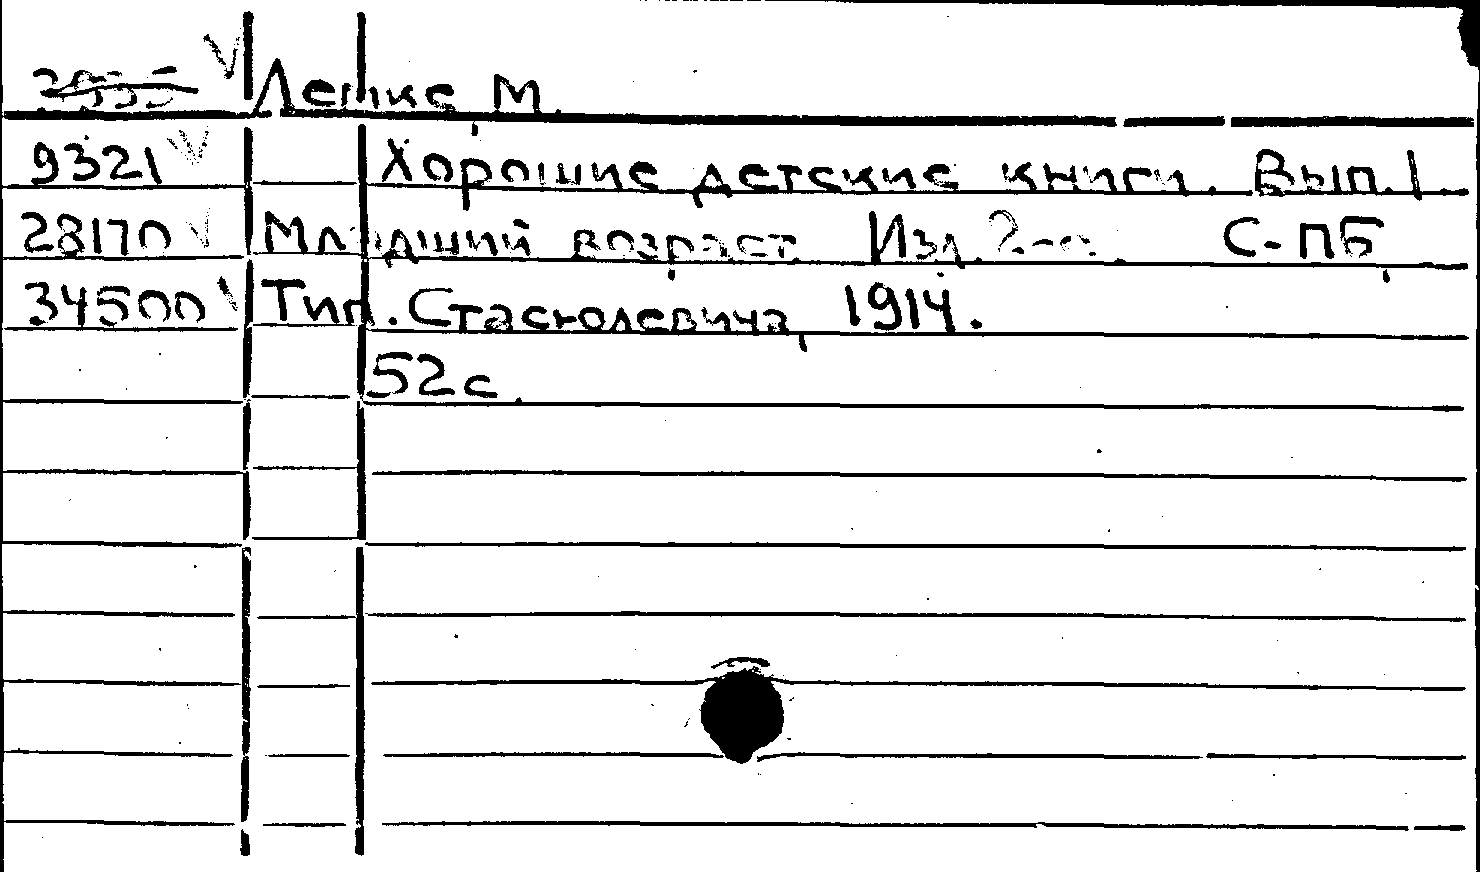 Лемке, М.
9321 Хорошие детские книги. Вып. 1.
28170 Младший возраст. Изд. 2-е. С-ПБ,
34500 Тип. Стасюлевича, 1914.
52 с.